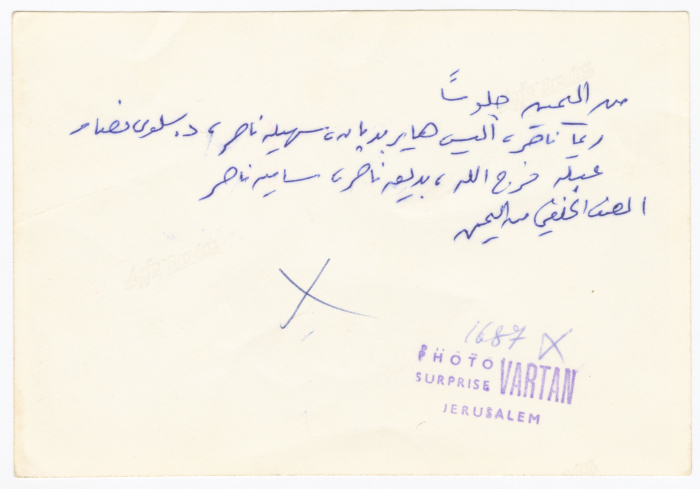 من اليمين جلوسًا
ريما ناصر، أليس هايربديان، سهيله ناصر، د. سلوى
عبله فرج الله، بديعه ناصر، ساميه ناصر
الصف الخلفي من اليمين
1687
PHOTO VARTAN
SURPRISE
JERUSALEM